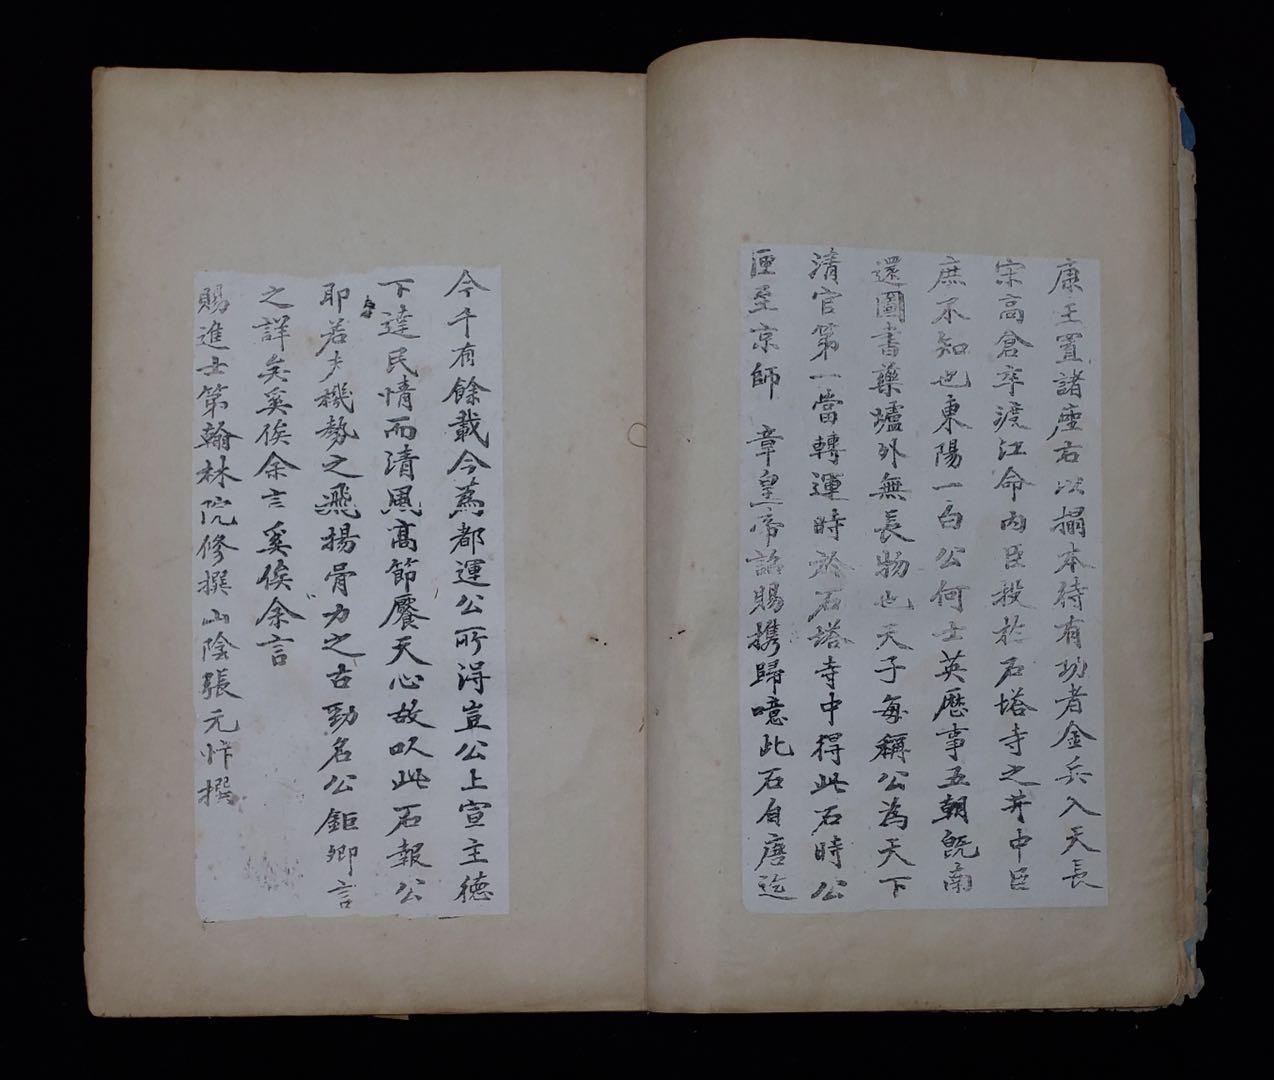 康王置諸座右以搨本待有功者金兵入天長
宋高倉卒渡江命內臣投於石塔寺之井中臣
庶不知也東陽一白公何士英歷事五朝旣南
還圖書藥壚外無長物也天子每稱公為天下
清官第一當轉運時於石塔寺中得此石時公
匣至京師 章皇帝詔賜携歸噫此石自唐迄
今千有餘載今為都運公所得豈公上宣主德
下達民情而清風高節饜天心故以此石報公
耶若夫機勢之飛揚骨力之古勁名公鉅卿言
之詳矣奚俟余言奚俟余言
賜進士第翰林院修撰山陰張元忭撰